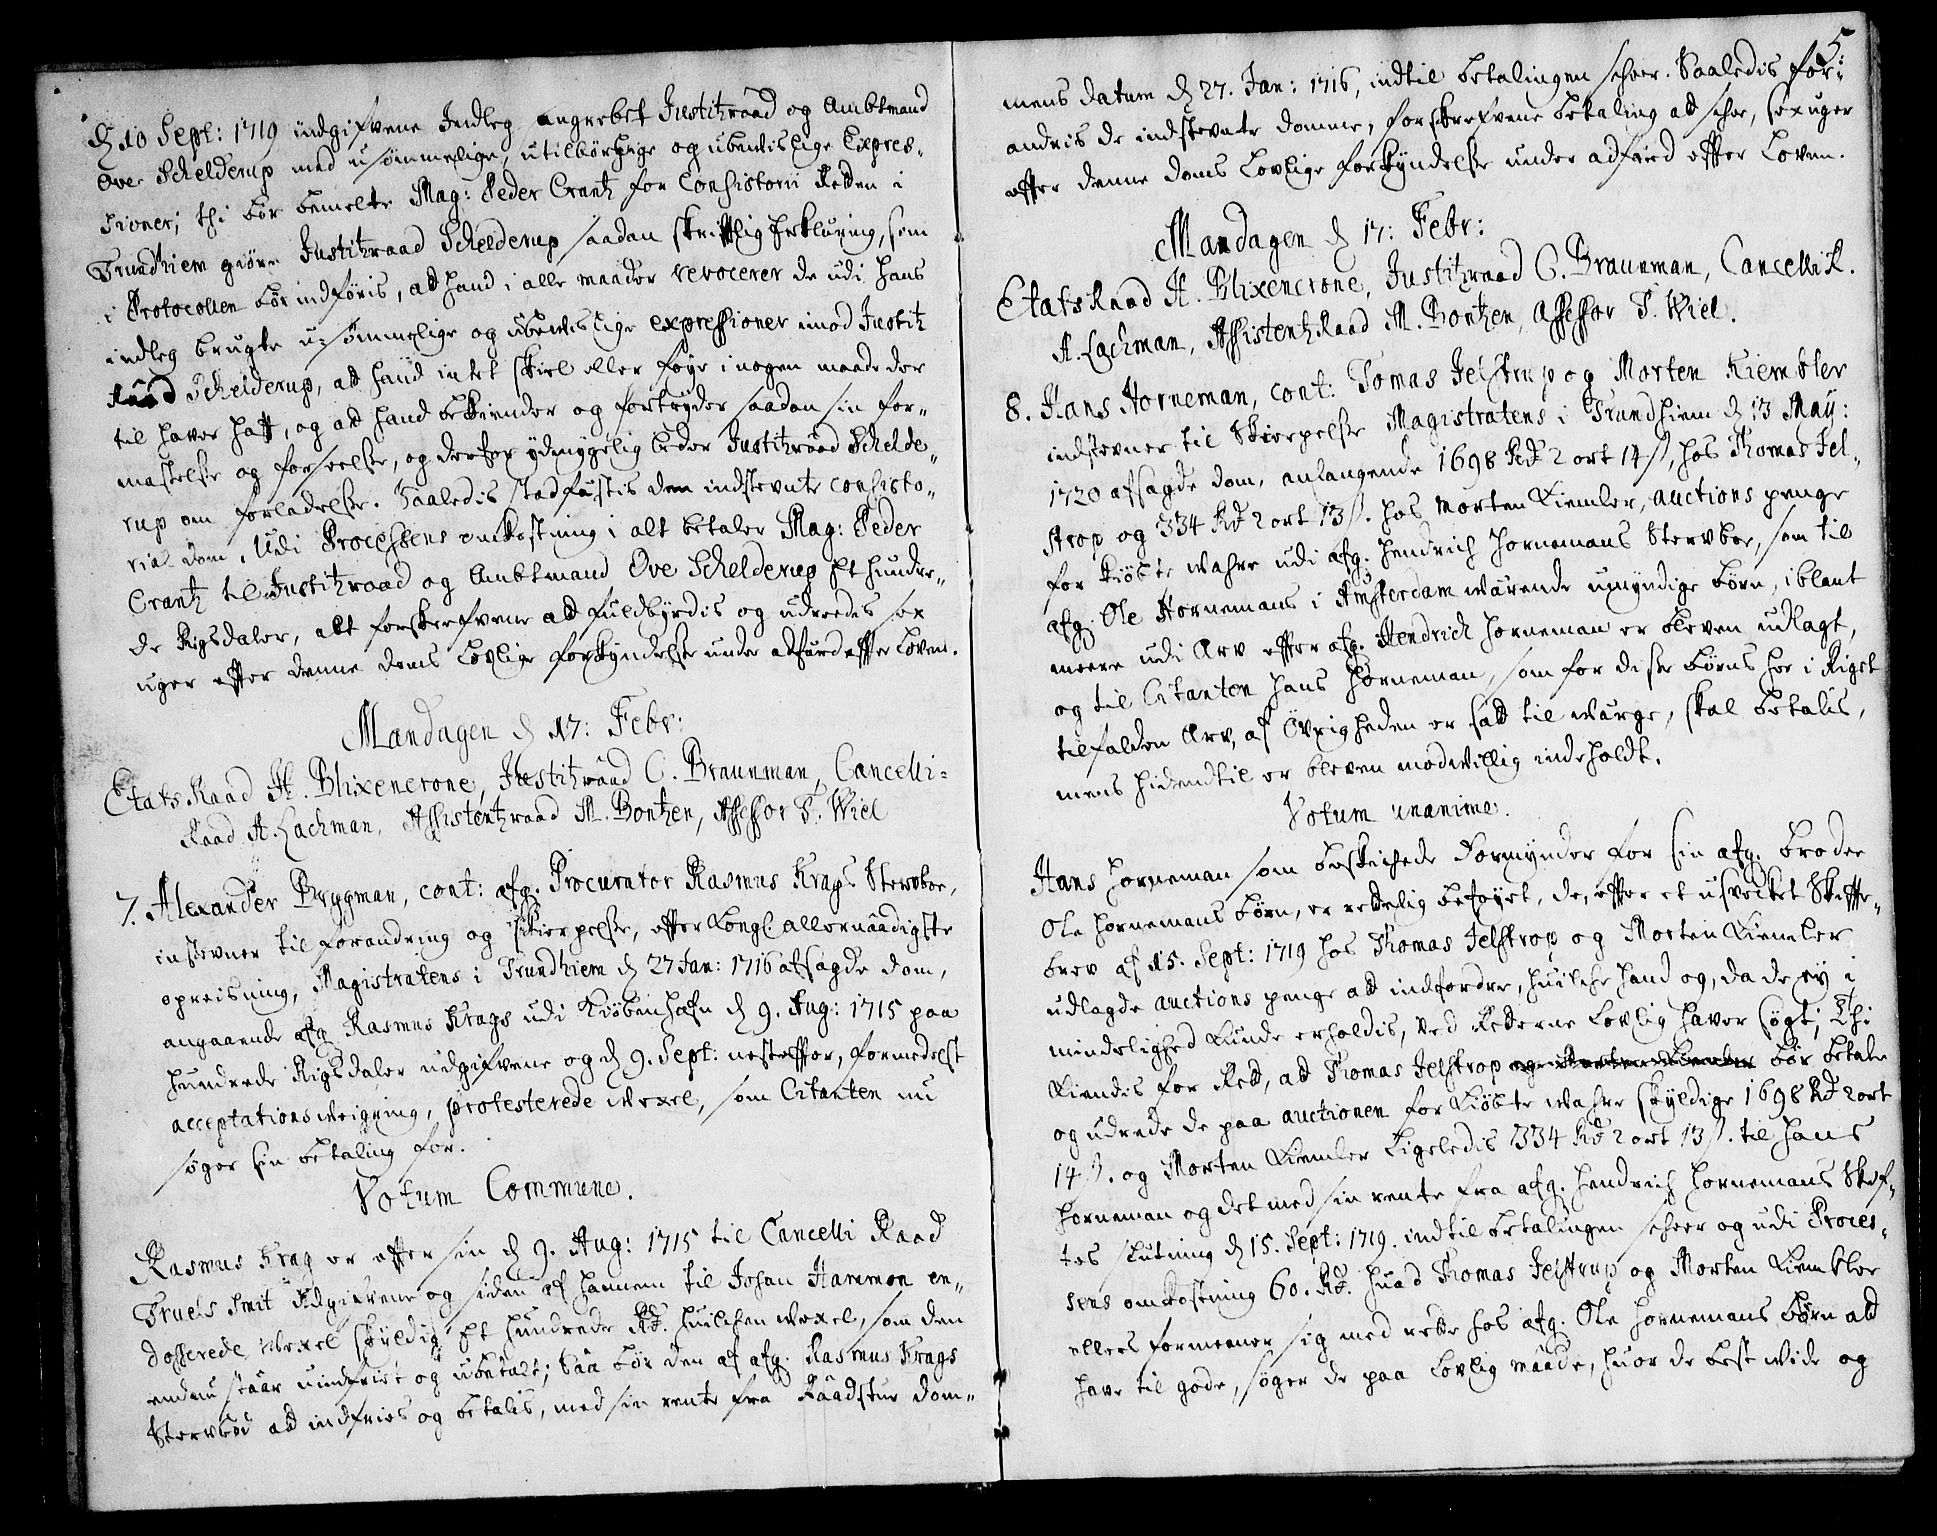 d 10 Sept: 1719 indgifvene Indleg angrebet Justitzraad og Ambtmand
Ove Schelderup med usømmelige, utilbørlige og ubevislige Expres-
sioner; thi bør bemelte Mag: Peder Crantz for Consistorii Retten i
Trundhiem giøre Justitzraad Schelderup saadan skriftlig Erklæring, som
i Protocollen bør indføris, at hand i alle maader revocerer de udi hans
indleg brugte u-sømmelige og ubevislige expressioner imod Justitz
Raad Schelderup, at hand intet skiel eller føye i nogen maade der
til haver haft, og at hand bekiender og fortryder saadan sin for-
mastelse og forseelse, og derfor ydmygelig beder Justitzraad Schelde-
rup om forladelse. Saaledis stadfæstis den indstevnte consisto-
rial dom. Udi Processens omkostning i alt betaler Mag: Peder
Crantz til Justitzraad og Ambtmand Ove Schelderup Et hundre-
de Rigsdaler, alt forskrefvene at fuldbyrdis og udreedis sex
uger effter denne doms Lovlige forkyndelse under adfærd effter Loven.
Mandagen d 17: Febr:
Etats Raad H. Blixencrone, Justitzraad C. Braunman, Cancelli-
Raad A. Lachman, Assistentzraad M. Bontzen, Assessor T. Wiel
7. Alexander Brygman, cont: afg. Procurator Rasmus Krags Stervboe,
instevner til forandring og Skierpelse, effter Kongl. allernaadigste
opreisning, Magistratens i Trundhiem d 27 Jan: 1716 afsagde dom,
angaaende afg. Rasmus Krags udi Kiøbenhafn d 9. Aug: 1715 paa
hundrede Rigsdaler udgifvene og d 9. Sept: nesteffter, formedelst
acceptations Weigring, protesterede Wexel, som Citanten nu
søger sin betaling for.
Votum Commune.
Rasmus Krag er effter sin d 9. Aug: 1715 til Cancelli Raad
Truels Smit udgifvene og siden af hannem til Johan Hammon en-
dosserede Wexel skyldig Et hundrede Rd. huilchen Wexel, som den
endnu staar uindfriet og ubetalt; Saa bør den af afg. Rasmus Krags
Stervboe at indfries og betalis, med sin rente fra Raadstue dom-
5.
mens datum d 27. Jan: 1716, indtil betalingen scheer. Saaledis for-
andris de indstevnte domme, forskrefvene betaling at schee, sex uger
effter denne doms Lovlige forkyndelse under adfærd effter Loven.
Mandagen d 17: Febr:
Etats Raad H. Blixencrone, Justitzraad C. Braunman, Cancelli R.
A. Lachman, Assistentz Raad M. Bontzen, Assessor T. Wiel.
8. Hans Horneman, cont: Tomas Jelstrup og Morten Kiembler
indstevner til Skierpelse Magistratens i Trundhiem d 13 May:
1720 afsagde dom, anlangende 1698 Rd 2 ort 14 s, hos Thomas Jel-
strop og 334 Rd 2 ort 13 s. hos Morten Kiemler, auctions penge
for kiøbte wahre udi afg. Hendrich Hornemans Stervboe, som til
afg. Ole Hornemans i Amsterdam wærende umyndige børn, iblant
meere udi Arv effter afg. Hendrich Horneman er bleven udlagt,
og til Citanten Hans Horneman, som for disse børns her i Riget
tilfalden Arv, af Øvrigheden er satt til Wærge, skal betalis,
mens hidendtil er bleven modvillig indeholdt.
Votum unanime.
Hans Horneman som beskichede Formynder for sin afg. broder
Ole Hornemans børn, er rettelig beføyet, de, effter et usvecket Skiffte-
brev af 15. Sept: 1719 hos Thomas Jelstrop og Morten Kiemler
udlagde auctions penge at indfordre, huilche hand og, da de ey i
mindelighed kunde erholdis, ved Retterne Lovlig haver søgt; Thi
kiendis for Ret, at Thomas Jelstrop og Morten Kiemler bør betale
og udrede de paa auctionen for kiøbte wahre skyldige 1698 Rd 2 ort
14 s. og Morten Kiemler ligeledis 334 Rd 2 ort 13 s. til Hans
Horneman og det med sin rente fra afg. Hendrich Hornemans Skif-
tes slutning d 15. Sept: 1719. indtil betalingen scheer og udi Proces-
sens omkostning 60. Rd. huad Thomas Jelstrup og Morten Kiembler
ellers formeener sig med rette hos afg. Ole Hornemans børn at
have til gode, søger de paa Lovlig maade, huor de best wide og